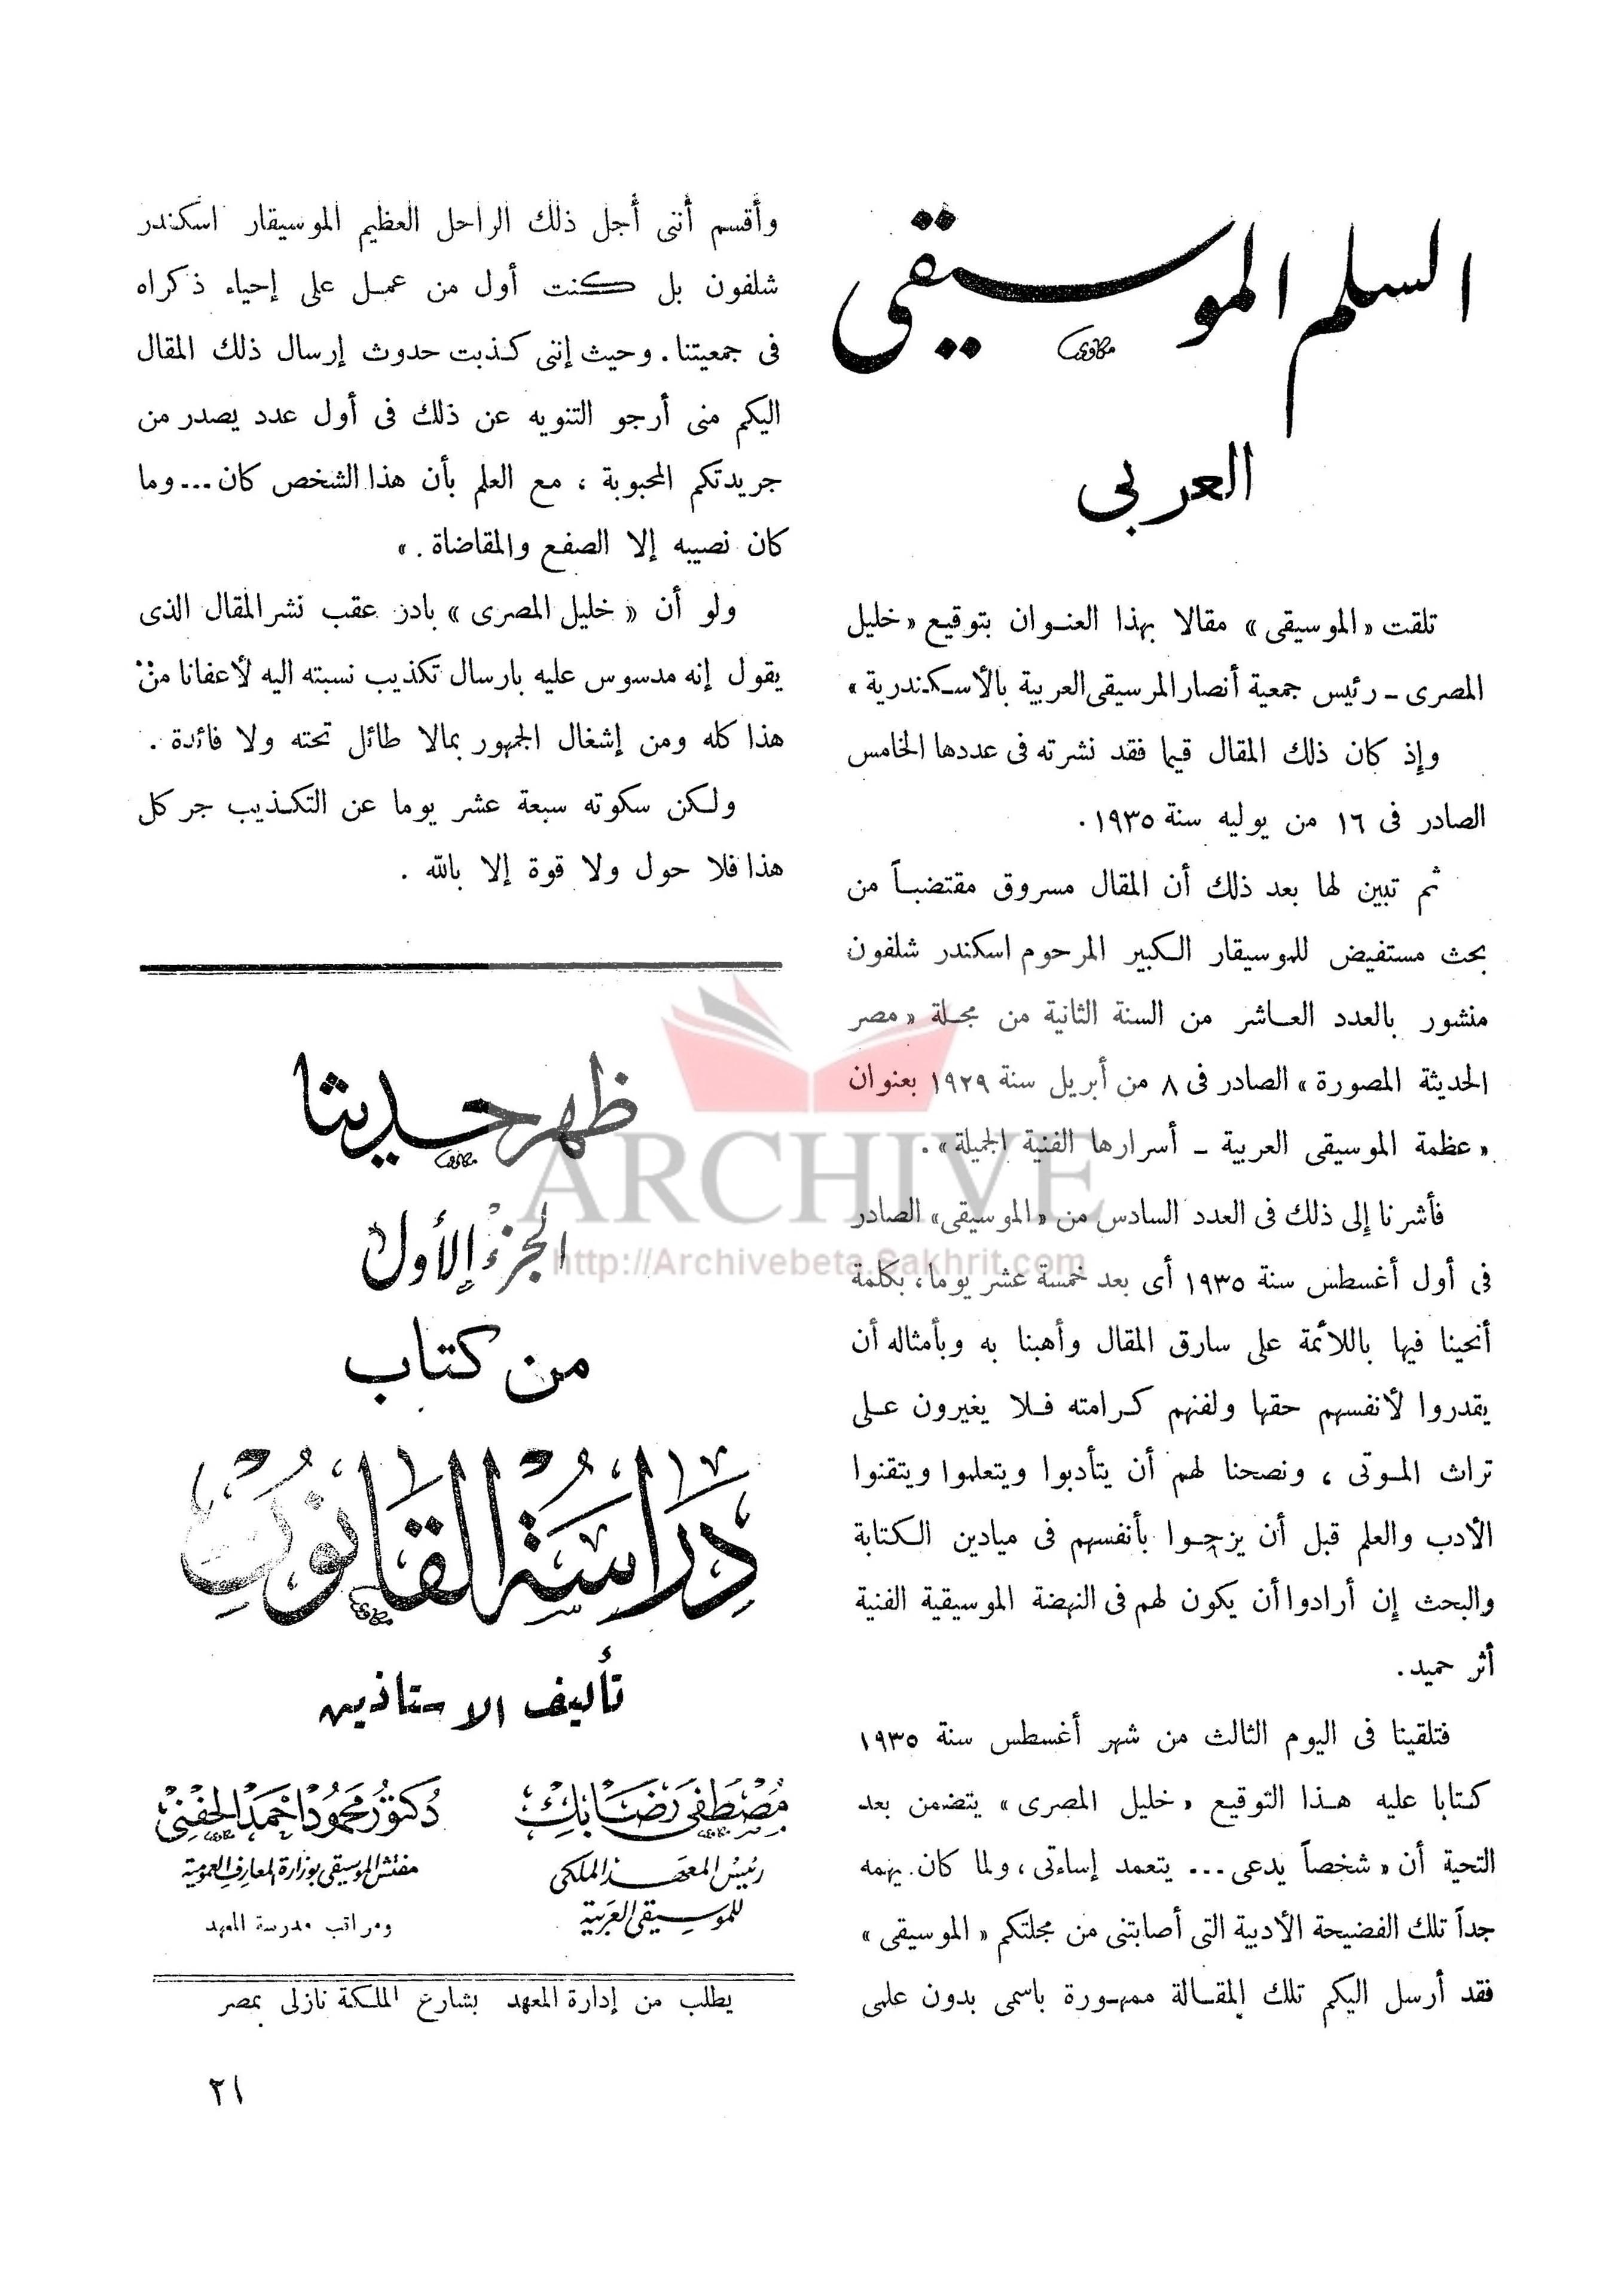 السلم الموسيقى
مكاوى
العربى
تلقت «الموسيقى» مقالا بهذا العنوان بتوقيع «خليل
المصرى ـ رئيس جمعية أنصار المرسيقى العربية بالأسكندرية»
وإذ كان ذلك المقال قيما فقد نشرته فى عددها الخامس
الصادر فى ١٦ من يوليه سنة ١٩٣٥.
ثم تبين لها بعد ذلك أن المقال مسروق مقتضباً من
بحث مستفيض للموسيقار الكبير المرحوم اسكندر شلفون
منشور بالعدد العاشر من السنة الثانية من مجلة «مصر
الحديثة المصورة» الصادر فى ٨ من أبريل سنة ١٩٢٩ بعنوان
«عظمة الموسيقى العربية ـ أسرارها الفنية الجميلة».
فأشرنا إلى ذلك فى العدد السادس من «الموسيقى» الصادر
فى أول أغسطس سنة ١٩٣٥ أى بعد خمسة عشر يوما، بكلمة
أنحينا فيها باللائمة على سارق المقال وأهبنا به وبأمثاله أن
يقدروا لأنفسهم حقها ولفنهم كرامته فلا يغيرون على
تراث الموتى ، ونصحنا لهم أن يتأدبوا ويتعلموا ويتقنوا
الأدب والعلم قبل أن يزجوا بأنفسهم فى ميادين الكتابة
والبحث إن أرادوا أن يكون لهم فى النهضة الموسيقية الفنية
أثر حميد.
فتلقينا فى اليوم الثالث من شهر أغسطس سنة ١٩٣٥
كتابا عليه هذا التوقيع «خليل المصرى» يتضمن بعد
التحية أن «شخصاً يدعى ... يتعمد إساءتى ، ولما كان يهمه
جداً تلك الفضيحة الأدبية التى أصابتنى من مجلتكم «الموسيقى»
فقد أرسل اليكم تلك المقالة ممهورة باسمى بدون علمى
وأقسم أننى أجل ذلك الراحل العظيم الموسيقار اسكندر
شلفون بل كنت أول من عمل على إحياء ذكراه
فى جمعيتنا. وحيث إننى كذبت حدوث إرسال ذلك المقال
اليكم منى أرجو التنويه عن ذلك فى أول عدد يصدر من
جريدتكم المحبوبة ، مع العلم بأن هذا الشخص كان... وما
كان نصيبه إلا الصفع والمقاضاة .»
ولو أن «خليل المصرى» بادر عقب نشر المقال الذى
يقول إنه مدسوس عليه بارسال تكذيب نسبته اليه لأعفانا من
هذا كله ومن إشغال الجمهور بمالا طائل تحته ولا فائدة .
ولكن سكوته سبعة عشر يوما عن التكذيب جر كل
هذا فلا حول ولا قوة إلا بالله .
ظهر حديثا
مكاوى
الجزء الأول
من كتاب
دِرَاسَة القَانُون
مكاوى
تأليف الاستاذين
مصطفى رضا بك
رئيس المعهد الملكى
للموسيقى العربية
دكتور محمود احمد الحفنى
مفتش الموسيقى بوزارة المعارف العمومية
ومراقب مدرسة المعهد
يطلب من إدارة المعهد بشارع الملكة نازلى بمصر
٢١
ARCHIVE
http://Archivebeta.Sakhrit.com